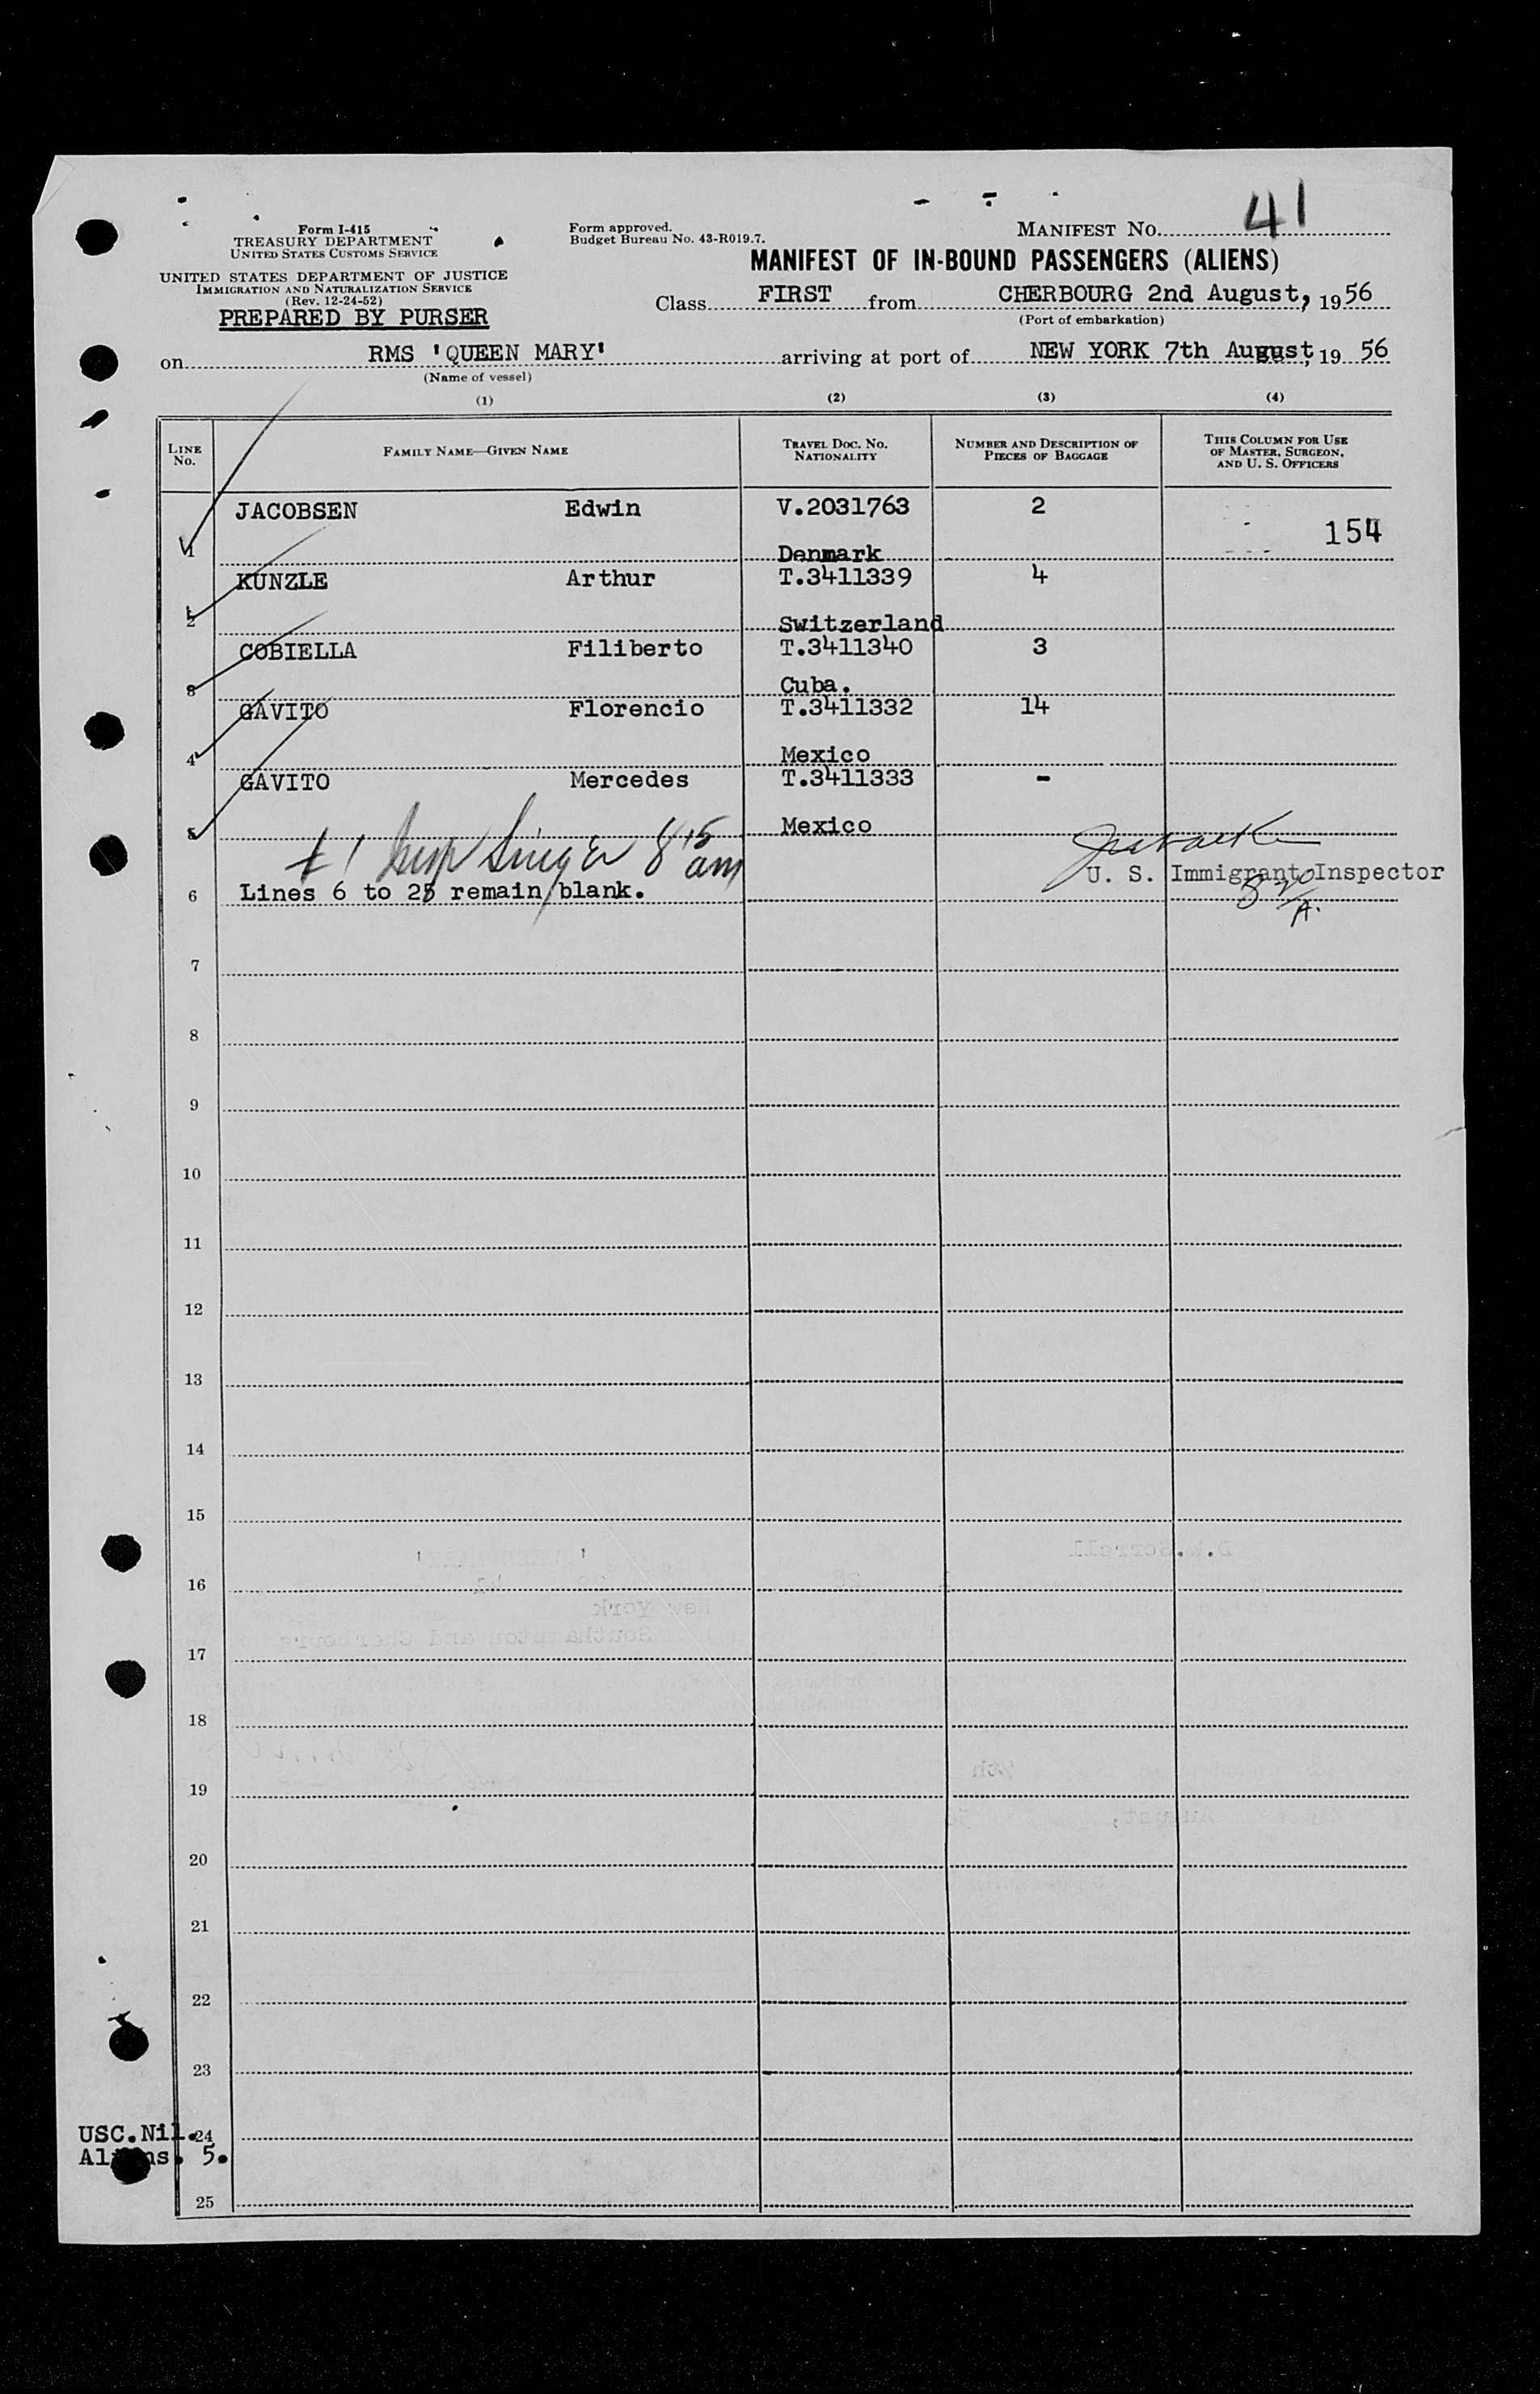 Form I-415
TREASURY DEPARTMENT
UNITED STATES CUSTOMS SERVICE
UNITED STATES DEPARTMENT OF JUSTICE
IMMIGRATION AND NATURALIZATION SERVICE
(Rev. 12-24-52)
PREPARED BY PURSER
Form approved.
Budget Bureau No. 43-R019.7.
MANIFEST NO. 41
MANIFEST OF IN-BOUND PASSENGERS (ALIENS)
Class FIRST from CHERBOURG 2nd August, 1956
(Port of embarkation)
on RMS 'QUEEN MARY' arriving at port of NEW YORK 7th August, 19 56
(Name of vessel)
(1) (2) (3) (4)
LINE NO. FAMILY NAME—GIVEN NAME TRAVEL DOC. NO. NATIONALITY NUMBER AND DESCRIPTION OF PIECES OF BAGGAGE THIS COLUMN FOR USE OF MASTER, SURGEON, AND U. S. OFFICERS
JACOBSEN Edwin V.2031763 2
154
1 Denmark
KUNZLE Arthur T.3411339 4
2 Switzerland
COBIELLA Filiberto T.3411340 3
3 Cuba.
GAVITO Florencio T.3411332 14
4 Mexico
GAVITO Mercedes T.3411333 -
5 Mexico
Singer 8 15 am
U. S. Immigrant Inspector
6 Lines 6 to 25 remain blank.
8 20 A.
7
8
9
10
11
12
13
14
15
16
17
18
19
20
21
22
23
USC.Nil. 24
Aliens. 5.
25